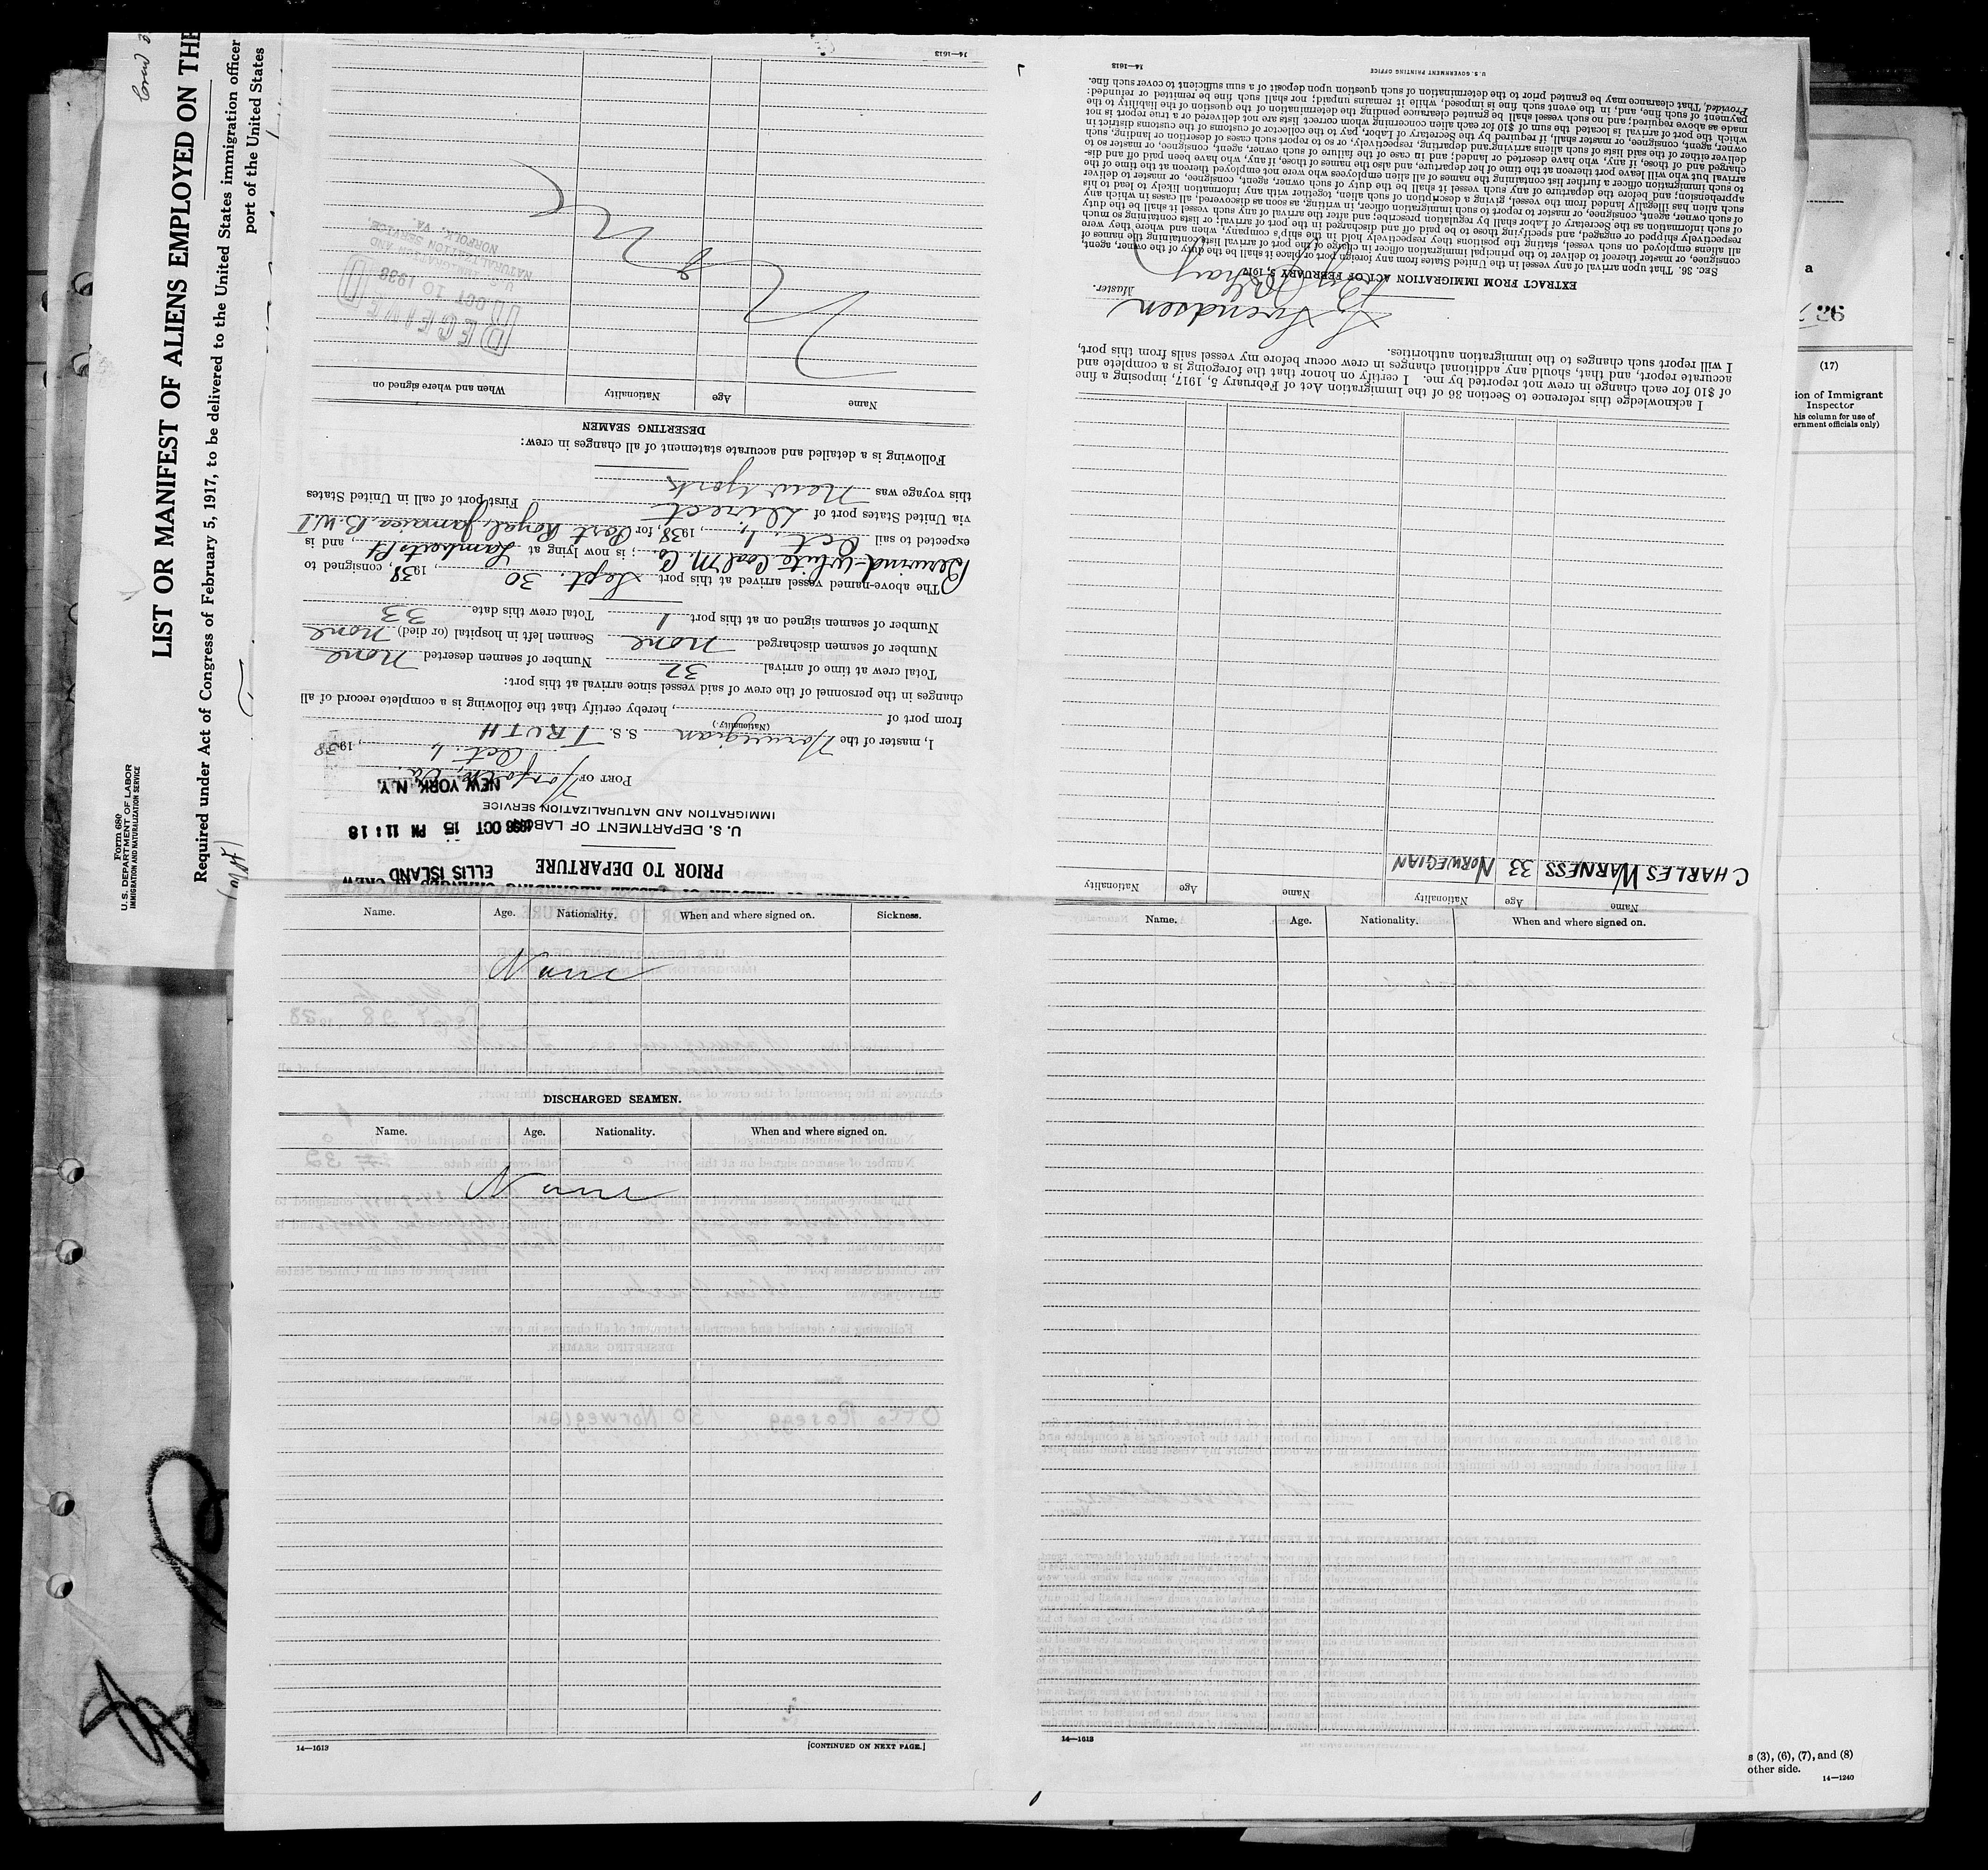 LIST OR MANIFEST OF ALIENS EMPLOYED ON THE
Required under Act of Congress of February 5, 1917, to be delivered to the United States immigration officer
port of the United States
Form 680
U. S. DEPARTMENT OF LABOR
IMMIGRATION AND NATURALIZATION SERVICE
PRIOR TO DEPARTURE
ELLIS ISLAND
U. S. DEPARTMENT OF LABOR
1938 OCT 15 PM 11:18
IMMIGRATION AND NATURALIZATION SERVICE
NEW YORK, N.Y.
PORT OF Norfolk, Va.
Oct. 4, 1938
I, master of the Norwegian S. S. TRUTH
(Nationality.)
from port of , hereby certify that the following is a complete record of all
changes in the personnel of the crew of said vessel since arrival at this port:
Total crew at time of arrival 32 Number of seamen deserted None
Number of seamen discharged None Seamen left in hospital (or died) None
Number of seamen signed on at this port 1 Total crew this date 33
The above-named vessel arrived at this port Sept. 30, 1938, consigned to
Berwind-White Coal M. Co.; is now lying at Lamberts Pt, and is
expected to sail Oct. 4, 1938, for Port Royal, Jamaica, B.W.I
via United States port of direct First port of call in United States
this voyage was New York
Following is a detailed and accurate statement of all changes in crew:
DESERTING SEAMEN
Name Age Nationality When and where signed on
RECEIVED
OCT 10 1938
U. S. IMMIGRATION AND
NATURALIZATION SERVICE,
NORFOLK, VA.
14—1613
Name Age Nationality Name Age Nationality
CHARLES WARNESS 33 NORWEGIAN
I acknowledge this reference to Section 36 of the Immigration Act of February 5, 1917, imposing a fine
of $10 for each change in crew not reported by me. I certify on honor that the foregoing is a complete and
accurate report, and that, should any additional changes in crew occur before my vessel sails from this port,
I will report such changes to the immigration authorities.
Svendsen
Master.
EXTRACT FROM IMMIGRATION ACT OF FEBRUARY 5, 1917
SEC. 36. That upon arrival of any vessel in the United States from any foreign port or place it shall be the duty of the owner, agent,
consignee, or master thereof to deliver to the principal immigration officer in charge of the port of arrival lists containing the names of
all aliens employed on such vessel, stating the positions they respectively hold in the ship's company, when and where they were
respectively shipped or engaged, and specifying those to be paid off and discharged in the port of arrival; or lists containing so much
of such information as the Secretary of Labor shall by regulation prescribe; and after the arrival of any such vessel it shall be the duty
of such owner, agent, consignee, or master to report to such immigration officer, in writing, as soon as discovered, all cases in which any
such alien has illegally landed from the vessel, giving a description of such alien, together with any information likely to lead to his
apprehension; and before the departure of any such vessel it shall be the duty of such owner, agent, consignee, or master to deliver
to such immigration officer a further list containing the names of all alien employees who were not employed thereon at the time of the
arrival but who will leave port thereon at the time of her departure, and also the names of those, if any, who have been paid off and dis-
charged and of those, if any, who have deserted or landed; and in case of the failure of such owner, agent, consignee, or master to
deliver either of the said lists of such aliens arriving and departing, respectively, or so to report such cases of desertion or landing, such
owner, agent, consignee, or master shall, if required by the Secretary of Labor, pay to the collector of customs of the customs district in
which the port of arrival is located the sum of $10 for each alien concerning whom correct lists are not delivered or a true report is not
made as above required; and no such vessel shall be granted clearance pending the determination of the question of the liability to the
payment of such fine, and, in the event such fine is imposed, while it remains unpaid; nor shall such fine be remitted or refunded:
Provided, That clearance may be granted prior to the determination of such question upon deposit of a sum sufficient to cover such fine.
U. S. GOVERNMENT PRINTING OFFICE
14—1613
Name. Age. Nationality. When and where signed on. Sickness.
None
DISCHARGED SEAMEN.
Name. Age. Nationality. When and where signed on.
None
14—1613
[CONTINUED ON NEXT PAGE.]
Name. Age. Nationality. When and where signed on.
14—1613
a
(17)
ion of Immigrant
Inspector
his column for use of
ernment officials only)
s (3), (6), (7), and (8)
other side.
14—1240